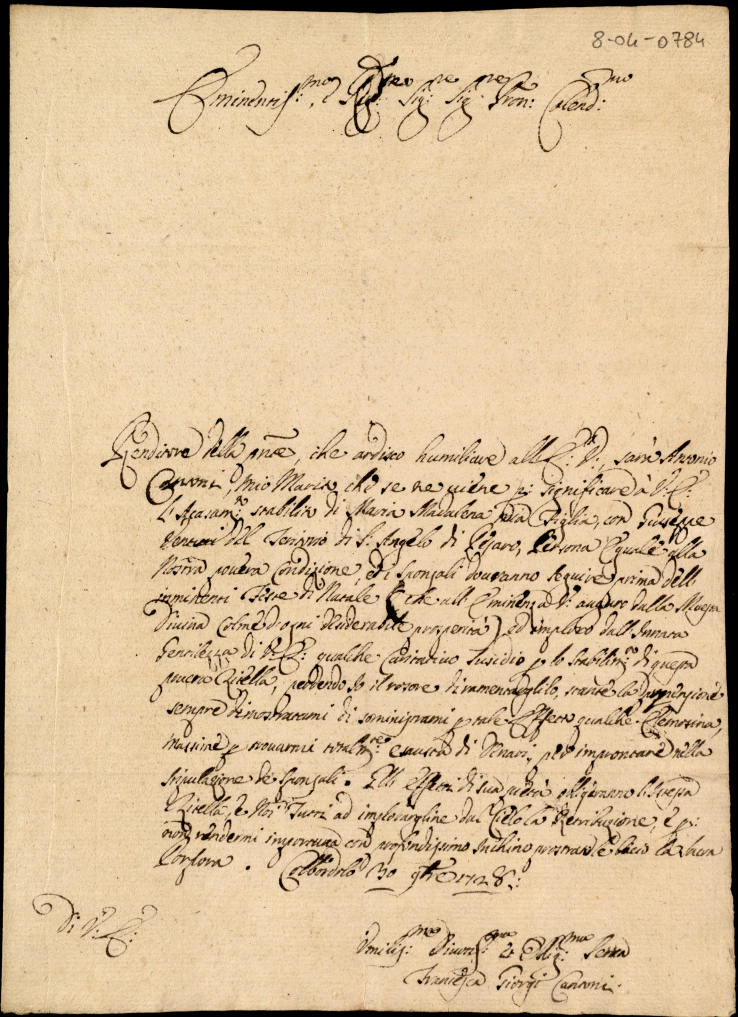 8-04-0784
Eminentiss:mo, e Rev:mo Sig:re Sig:re Pron: Colend:mo
Renditore della pnte, che ardisco humiliare all'E: V:, sarà Antonio
Cantoni, mio Marito, che se ne viene p significare à V: E:
l'Acasam:to stabilito di Maria Madalena mia Figlia, con Giuseppe
Venturi del Territorio di S: Angelo di Pesaro, Persona Eguale alla
Nostra povera Condizione, ed i Sponsali dovranno seguire prima dell'
imminenti Feste di Natale (che all'Eminenza V: auguro dalla Mensa
Divina Colme d'ogni desiderabile prosperità) ed imploro dall'Innata
Gentilezza di V: E: qualche Caritativo Sussidio p lo Stabilim:to di questa
povera Zitella, perdendo Io il rossore di ramentarglielo, stante la propensione
sempre dimostratami di somministrarmi p tale Effetto qualche Elemosina,
massime p trovarmi total:te esausta di Denari, per improntare nella
stipulazione de Sponsali. Elli effetti di sua pietà obligaranno l'istessa
Zitella, e Noi Tutti ad implorargline dal Cielo la Retribuzione, e p
non rendermi importuna con profondissimo Inchino prostrata le bacio la Sacra
Porpora. Colbordolo 30 9bre 1728:
Di V: E:
Umiliss:ma Divotiss:ma et Oblig:ma Serva
Francesca Giorgi Cantoni